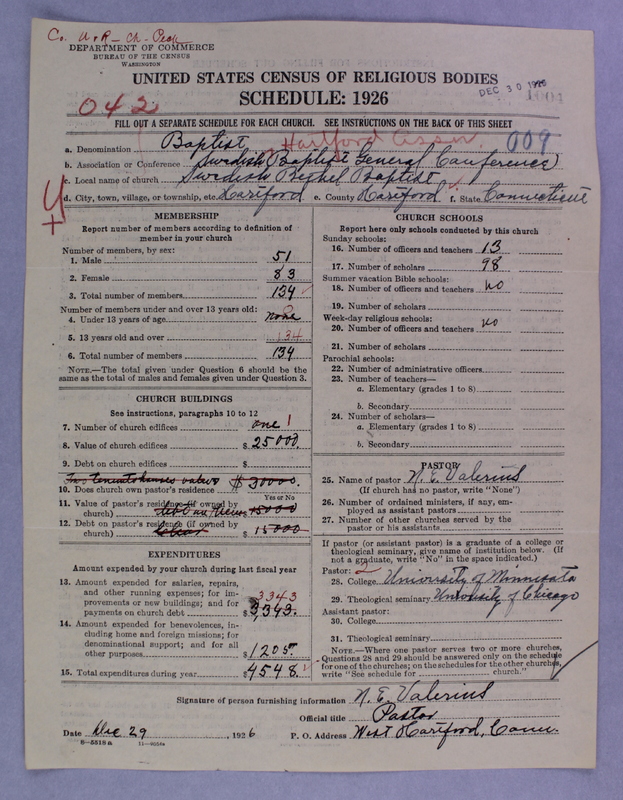 Co. U+R - Ch - Peck
DEPARTMENT OF COMMERCE
BUREAU OF THE CENSUS
WASHINGTON
UNITED STATES CENSUS OF RELIGIOUS BODIES
SCHEDULE: 1926
DEC 30 1926
042
FILL OUT A SEPARATE SCHEDULE FOR EACH CHURCH. SEE INSTRUCTIONS ON THE BACK OF THIS SHEET
a. Denomination Baptist Hartford Assn. 009
b. Association or Conference Swedish Baptist General Conference
c. Local name of church Swedish Bethel Baptist
d. City, town, village, or township, etc. Hartford e. County Hartford f. State Connecticut
MEMBERSHIP
Report number of members according to definition of
member in your church
Number of members, by sex:
1. Male 51
2. Female 83
3. Total number of members 134
Number of members under and over 13 years old:
4. Under 13 years of age none
5. 13 years old and over 134
6. Total number of members 134
NOTE.—The total given under Question 6 should be the
same as the total of males and females given under Question 3.
CHURCH BUILDINGS
See instructions, paragraphs 10 to 12
7. Number of church edifices one 1
8. Value of church edifices $ 25000.
9. Debt on church edifices $
$30000.
10. Does church own pastor's residence
Yes or No
11. Value of pastor's residence (if owned by
church) 15000
12. Debt on pastor's residence (if owned by
church) $ 15000
EXPENDITURES
Amount expended by your church during last fiscal year
13. Amount expended for salaries, repairs,
and other running expenses; for im-
provements or new buildings; and for
payments on church debt $ 3,343. 3343
14. Amount expended for benevolences, in-
cluding home and foreign missions; for
denominational support; and for all
other purposes $ 1205.
15. Total expenditures during year $ 4548.
CHURCH SCHOOLS
Report here only schools conducted by this church
Sunday schools:
16. Number of officers and teachers 13
17. Number of scholars 98
Summer vacation Bible schools:
18. Number of officers and teachers no
19. Number of scholars
Week-day religious schools:
20. Number of officers and teachers no
21. Number of scholars
Parochial schools:
22. Number of administrative officers
23. Number of teachers—
a. Elementary (grades 1 to 8)
b. Secondary
24. Number of scholars—
a. Elementary (grades 1 to 8)
b. Secondary
PASTOR
25. Name of pastor N. E. Valerius
(If church has no pastor, write "None")
26. Number of ordained ministers, if any, em-
ployed as assistant pastors
27. Number of other churches served by the
pastor or his assistants
If pastor (or assistant pastor) is a graduate of a college or
theological seminary, give name of institution below. (If
not a graduate, write "No" in the space indicated.)
Pastor: 2
28. College University of Minnesota
29. Theological seminary University of Chicago
Assistant pastor:
30. College
31. Theological seminary
NOTE.—Where one pastor serves two or more churches,
Questions 28 and 29 should be answered only on the schedule
for one of the churches; on the schedules for the other churches,
write "See schedule for church."
Signature of person furnishing information N. E. Valerius
Official title Pastor
Date Dec 29, 1926 P. O. Address West Hartford, Conn.
8—5518a 11—9058a